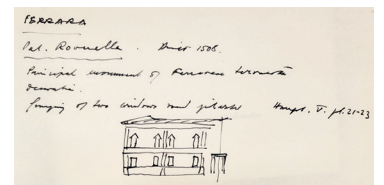 FERRARA
Pal. Roverella. Dies 1508.
Principal monument of Ferrarese terracotta
decoration.
Grouping of two windows and pilaster Haupt. V. pl. 21-23